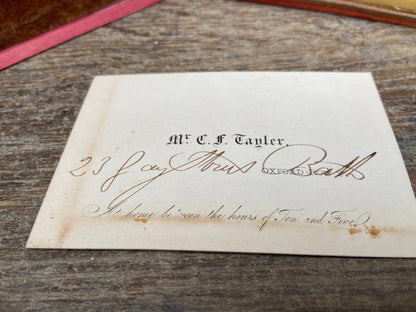 Mr. C. F. Tayler.
23 Gay Street Bath
OXFORD
At home be'ween the hours of Ten and Five